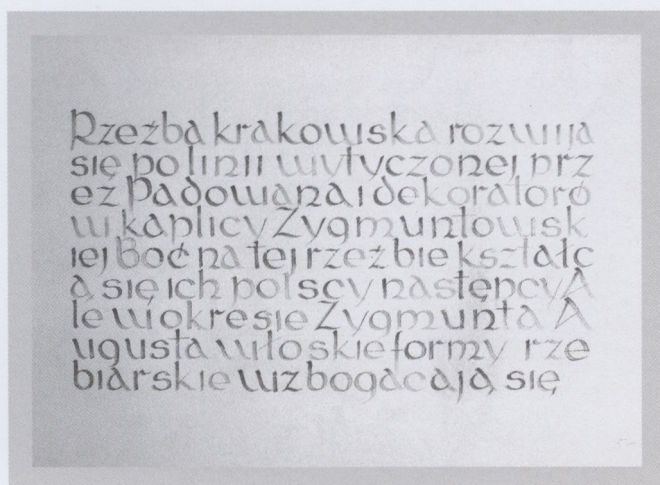 Rzeźba krakowska rozwija
się po linii wytyczonej prz
ez Padowana i dekoratoró
w kaplicy Zygmuntowsk
iej Boć na tej rzeźbie kształc
ą się ich polscy następcy A
le w okresie Zygmunta A
ugusta włoskie formy rze
biarskie wzbogacają się